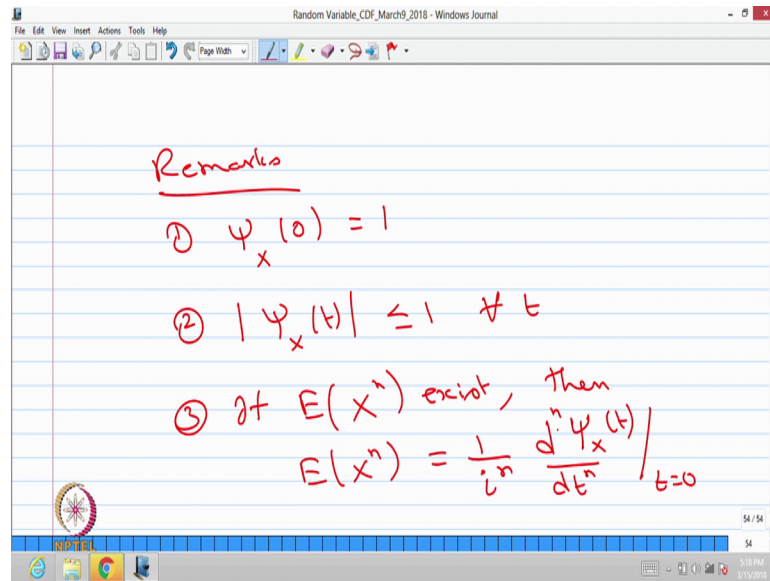 Random Variable_CDF_March9_2018 - Windows Journal
File Edit View Insert Actions Tools Help
Page Width
Remarks
① Ψ_X(0) = 1
② |Ψ_X(t)| ≤ 1 ∀ t
③ If E(X^n) exist, then
E(X^n) = 1/i^n d^n Ψ_X(t)/dt^n |_{t=0}
54 / 54
NPTEL
54
5:18 PM
3/15/2018